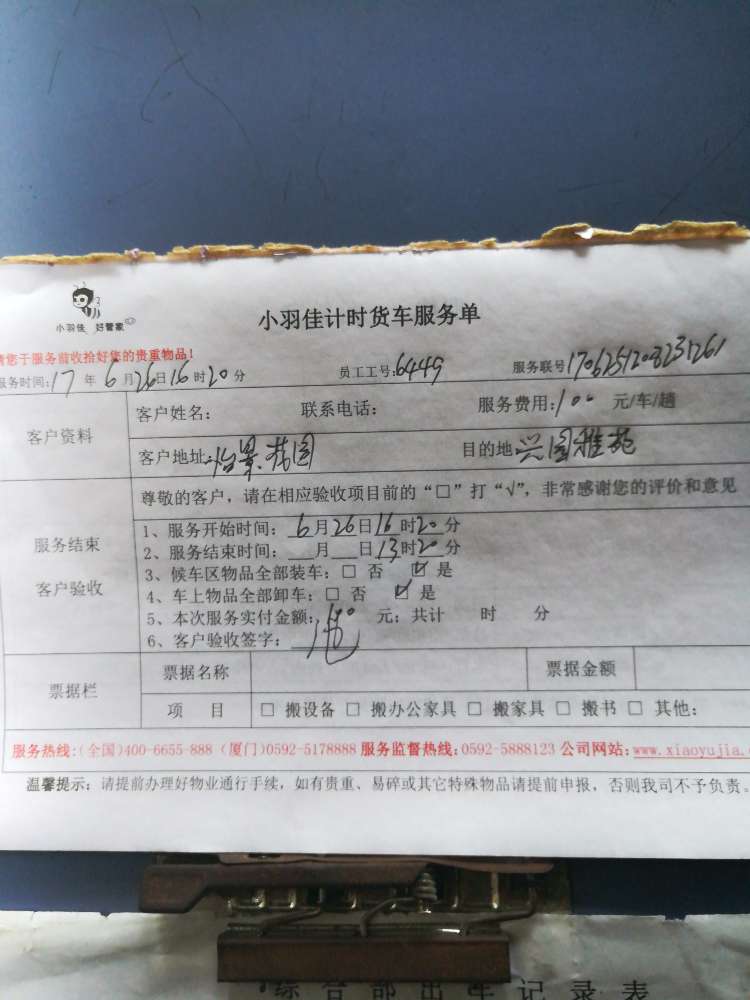 小羽佳 好管家
小羽佳计时货车服务单
请您于服务前收拾好您的贵重物品！
服务时间:17年6月26日16时20分 员工工号:6449 服务联号
客户资料
客户姓名: 联系电话: 服务费用:100 元/车/趟
客户地址:怡景花园 目的地 兴国雅苑
服务结束
客户验收
尊敬的客户，请在相应验收项目前的“□”打“√”，非常感谢您的评价和意见
1、服务开始时间: 6月26日16时20分
2、服务结束时间: 月 日13时20分
3、候车区物品全部装车: □ 否 ☑ 是
4、车上物品全部卸车: □ 否 ☑ 是
5、本次服务实付金额: 元; 共计 时 分
6、客户验收签字:
票据栏
票据名称 票据金额
项 目 □ 搬设备 □ 搬办公家具 □ 搬家具 □ 搬书 □ 其他:
服务热线:(全国)400-6655-888 (厦门)0592-5178888 服务监督热线:0592-5888123 公司网站:www.xiaoyujia.
温馨提示: 请提前办理好物业通行手续, 如有贵重、易碎或其它特殊物品请提前申报, 否则我司不予负责。
综合部出车记录表